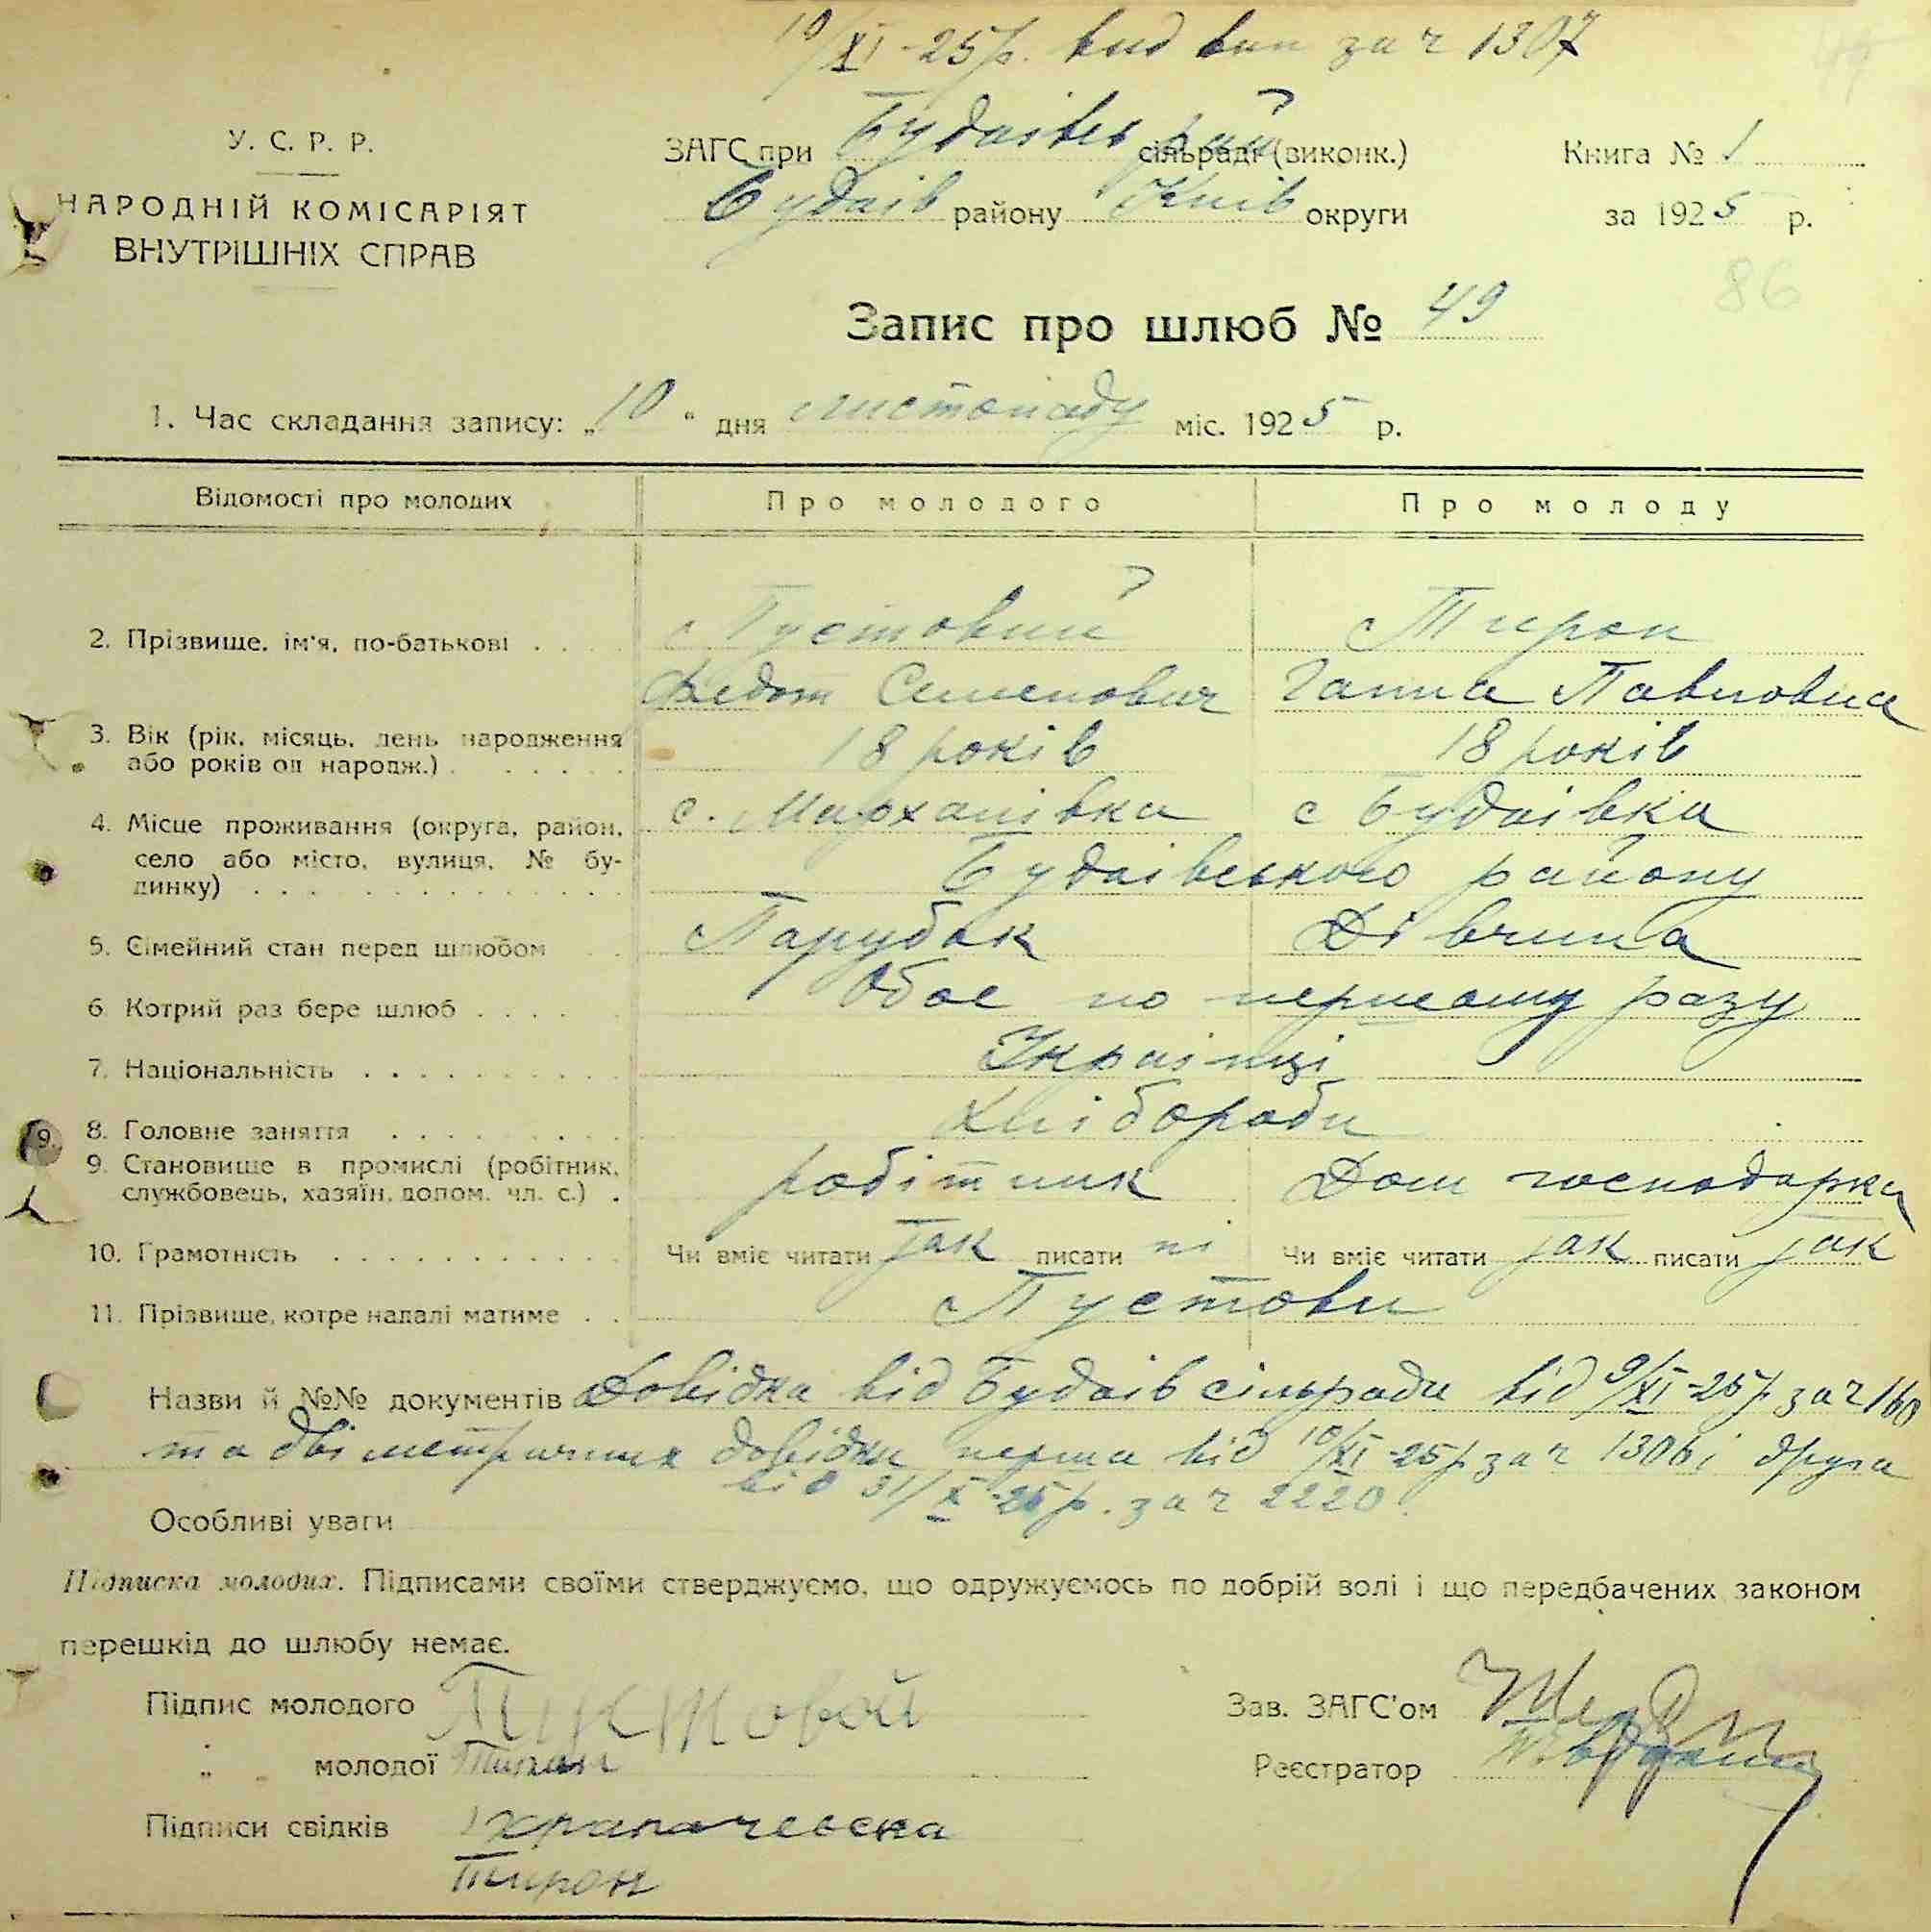 10/XI-25р. вид вип за ч 1307
У. С. Р. Р.
НАРОДНІЙ КОМІСАРІЯТ
ВНУТРІШНІХ СПРАВ
ЗАГС при Будаївськ рай сільраді (виконк.)
Будаїв району Київ округи
Книга № 1
за 1925 р.
86
Запис про шлюб № 49
1. Час складання запису: „10“ дня листопаду міс. 1925 р.
Відомості про молодих Про молодого Про молоду
2. Прізвище, ім'я, по-батькові . . . . Пустовий Тирон
Федот Семенович Ганна Павловна
3. Вік (рік, місяць, день народження
або років од народж.) . . . . . . 18 років 18 років
4. Місце проживання (округа, район,
село або місто, вулиця, № бу-
динку) . . . . . . . . . . . . с. Мархалівка с Будаївка
Будаївського району
5. Сімейний стан перед шлюбом . . Парубок Дівчина
6 Котрий раз бере шлюб . . . . Обоє по першому разу
7. Національність . . . . . . . . . . Українці
8. Головне заняття . . . . . . . . Хлібороби
9. Становище в промислі (робітник,
службовець, хазяїн, допом. чл. с.) . робітник Дом господарка
10. Грамотність . . . . . . . . . . . Чи вміє читати так писати ні Чи вміє читати так писати так
11. Прізвище, котре надалі матиме . . Пустові
Назви й №№ документів Довідка від Будаїв сільради від 9/XI-25р за ч 160
та дві метричних довідки перша від 10/XI-25р за ч 1306 і друга
від 31/X-25р. за ч 2220
Особливі уваги
Підписка молодих. Підписами своїми стверджуємо, що одружуємось по добрій волі і що передбачених законом
перешкід до шлюбу немає.
Підпис молодого Пустовой
Зав. ЗАГС'ом
„ „ молодої Тирон
Реєстратор
Підписи свідків Храпачевска
Тирон